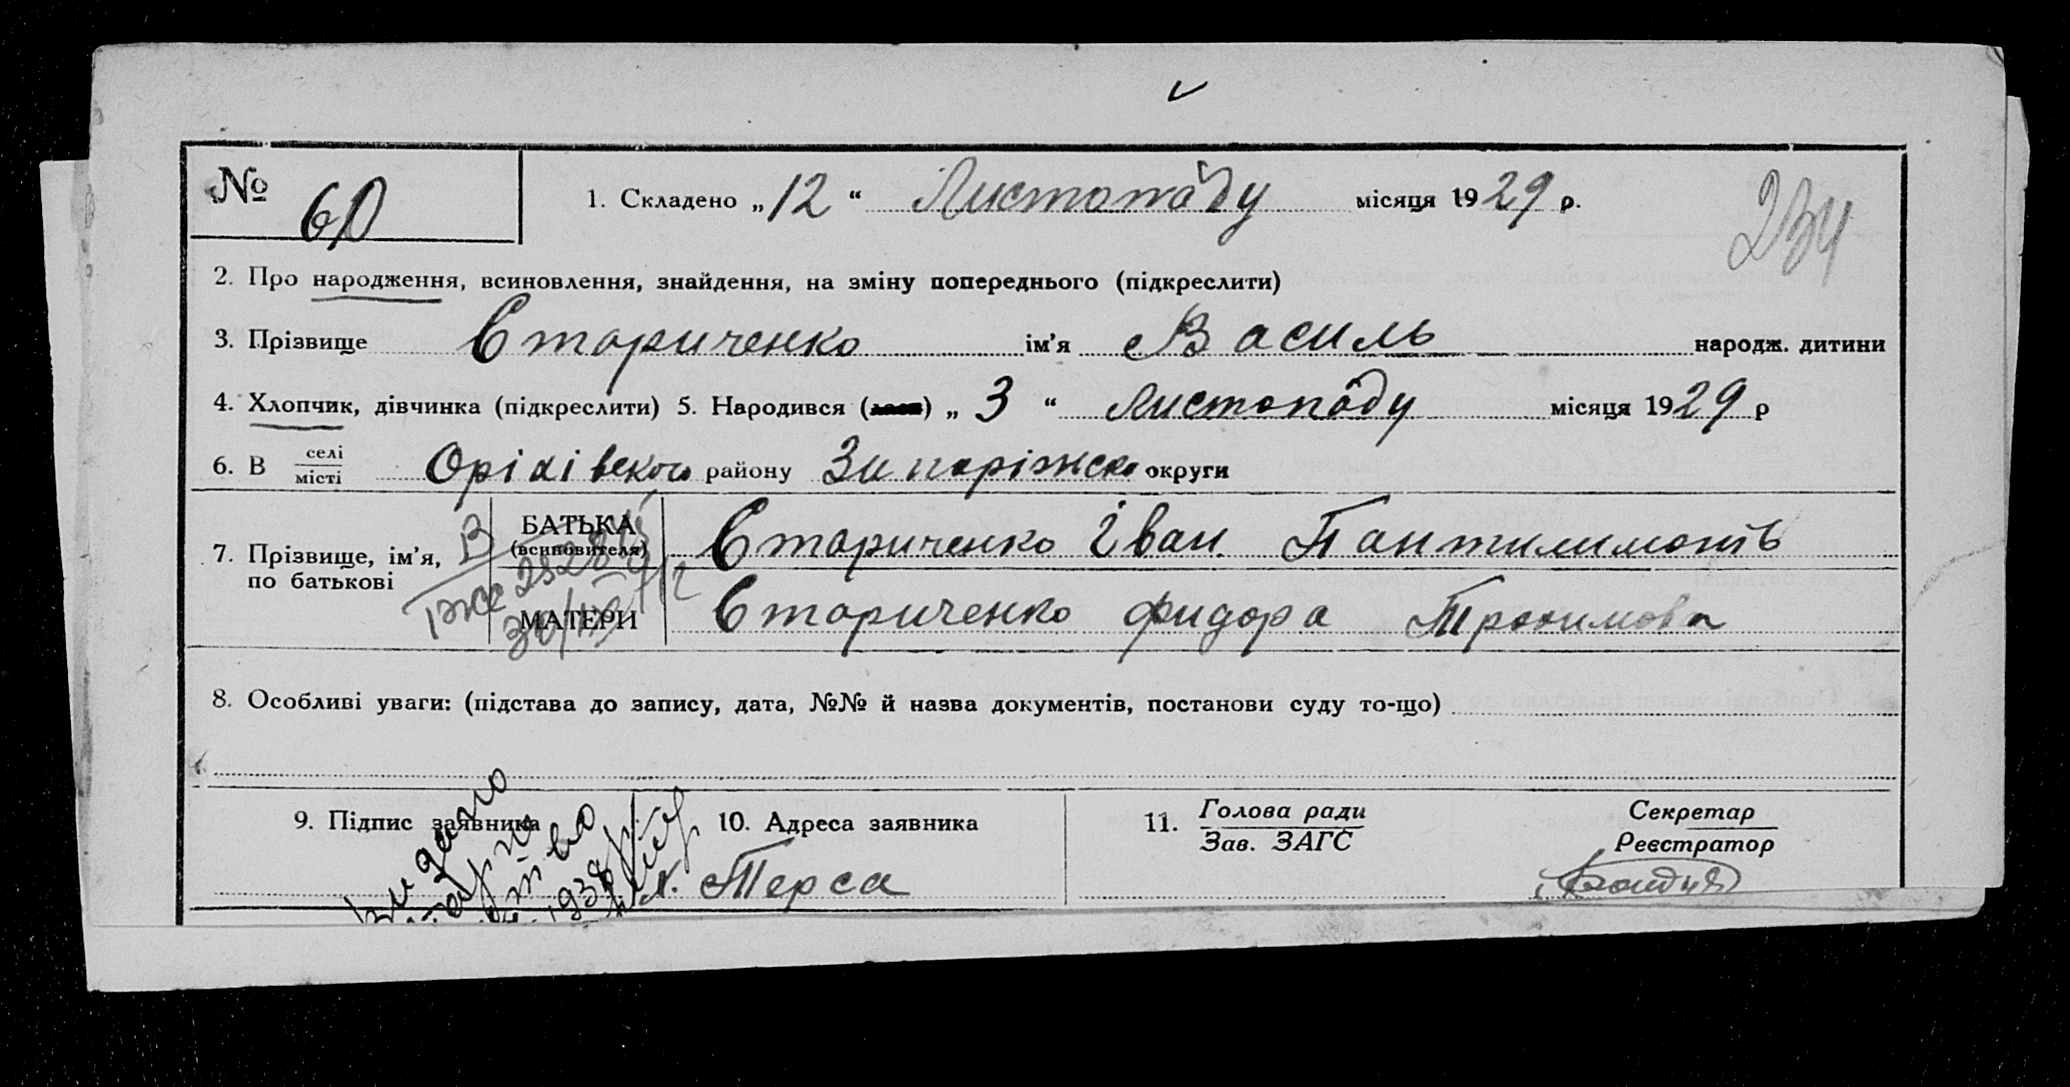 № 60 1. Складено „12“ Листопаду місяця 1929 р.
234
2. Про народження, всиновлення, знайдення, на зміну попереднього (підкреслити)
3. Прізвище Стариченко ім'я Василь народж. дитини
4. Хлопчик, дівчинка (підкреслити) 5. Народився ( ) „3“ листопаду місяця 1929 р
6. В селі
місті Оріхівского району Запоріжско округи
7. Прізвище, ім'я,
по батькові
БАТЬКА
(всиновителя) Стариченко Іван
МАТЕРИ Стариченко Фидора Трохимова
8. Особливі уваги: (підстава до запису, дата, №№ й назва документів, постанови суду то-що)
9. Підпис заявника
10. Адреса заявника
х. Терса
11. Голова ради
Зав. ЗАГС
Секретар
Реєстратор